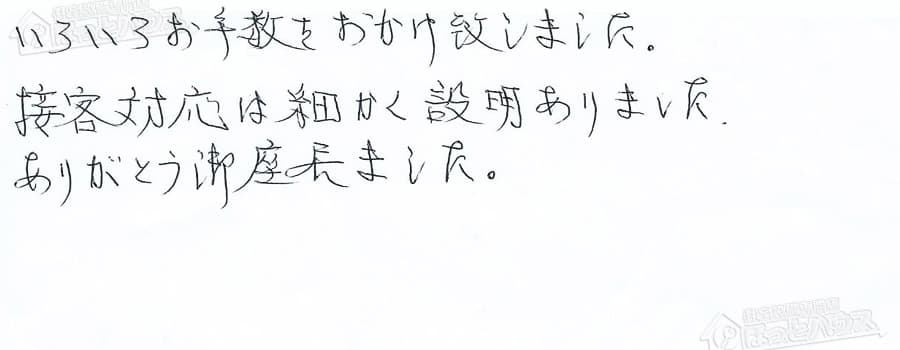 いろいろお手数をおかけ致しました。
接客対応は細かく説明ありました.
ありがとう御座長ました。
ほっとハウス